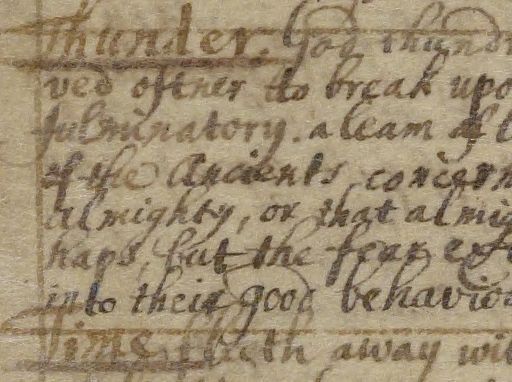 Thunder. God thundr
ved oftner to break upo
fulminatory. a leam of l
of the Ancients, concern
almighty, or that almig
haps, but the fear ext
into their good behavio
Time fleeth away wit